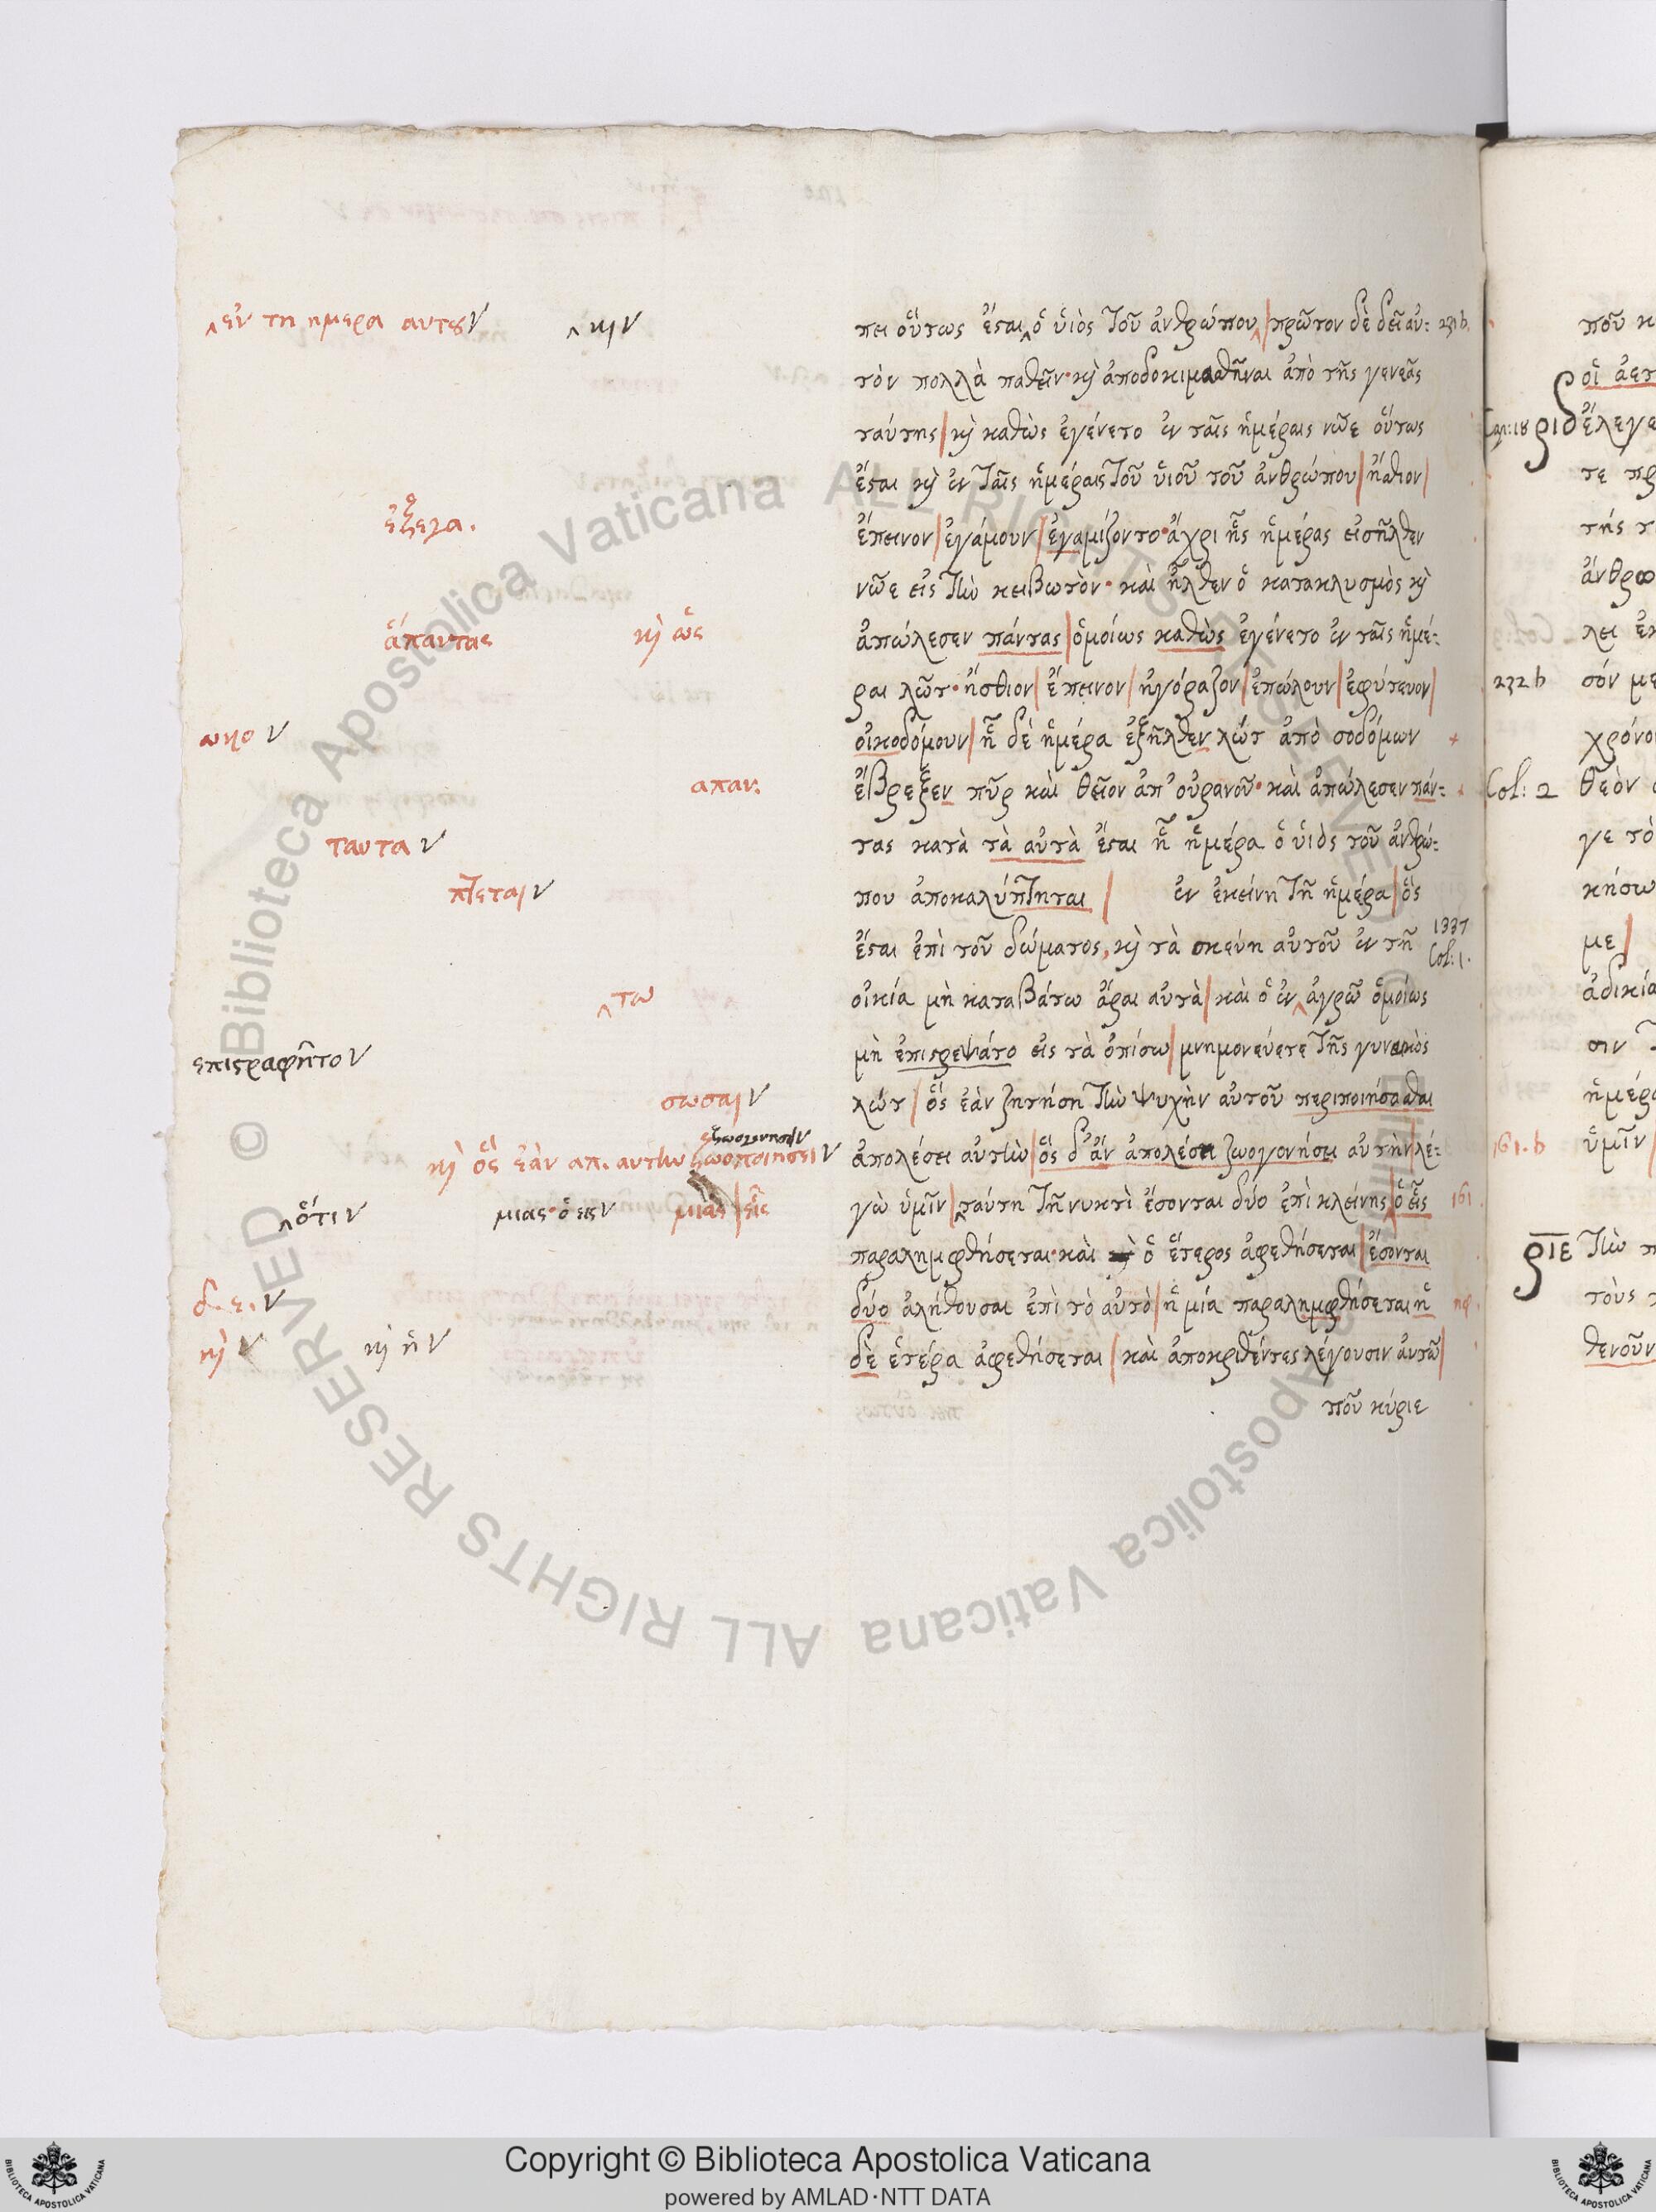 ‸ εν τη ημερα αυτου ν ‸ κι ν
πει οὕτως ἔσται ‸ ὁ ὑιὸς τοῦ ἀνθρώπου ‸ | πρῶτον δὲ δεῖ αὐ: 231 b.
τὸν πολλὰ παθεῖν · κ̀ ἀποδοκιμασθῆναι ἀπὸ τῆς γενεᾶς
ταύτης | κ̀ καθὼς ἐγένετο ἐν ταῖς ἡμέραις νῶε οὕτως
ἔσται κ̀ ἐν ταῖς ἡμέραις τοῦ ὑιοῦ τοῦ ἀνθρώπου | ἤσθιον |
ἔπεινον | ἐγάμουν | ἐγαμίζοντο · ἄχρι ἧς ἡμέρας εἰσῆλθεν
νῶε εἰς τὴν κειβωτὸν · καὶ ἦλθεν ὁ κατακλυσμὸς κ̀
ἅπαντας κ̀ ὡς
ἀπώλεσεν πάντας | ὁμοίως καθὼς ἐγένετο ἐν ταῖς ἡμέ:
ραι λῶτ · ἤσθιον | ἔπεινον | ἠγόραζον | ἐπώλουν | ἐφύτευον |
ωκο ν
οἰκοδόμουν | ᾗ δὲ ἡμέρα ἐξῆλθεν λώτ ἀπὸ σοδόμων +
απαν:
ἔβρεξεν πῦρ καὶ θεῖον ἀπ' οὐρανοῦ · καὶ ἀπώλεσεν πάν:
ταυτα ν
τας κατὰ τὰ αὐτὰ ἔσται ᾗ ἡμέρα ὁ ὑιὸς τοῦ ἀνθρώ:
πτεται ν
που ἀποκαλύπτηται | ἐν ἐκείνη τῆ ἡμέρα | ὃς
ἔσται ἐπὶ τοῦ δώματος, κ̀ τὰ σκεύη αὐτοῦ ἐν τῆ 1337 Col: 1.
‸ τω
οἰκία μὴ καταβάτω ἆραι αὐτὰ | καὶ ὁ ἐν ‸ ἀγρῶ ὁμοίως
επιστραφητο ν
μὴ ἐπιστρεψάτο εἰς τὰ ὀπίσω | μνημονεύετε τῆς γυναικὸς
σωσαι ν
λώτ | ὃς ἐὰν ζητήση τὴν ψυχὴν αὐτοῦ περιποιήσασθαι
κ̀ ὃς ἐὰν απ. αυτην ζωοποιησει ν
ἀπολέσει αὐτὴν | ὃς δ' ἂν ἀπολέσει ζωογονήσει αὐτὴν | λέ:
‸ ὅτι ν μιας · ὁ εις ν μιᾶς | εἷς
γὼ ὑμῖν | ‸ ταύτη τῆ νυκτὶ ἔσονται δύο ἐπὶ κλείνης | ὁ εἷς 161.
παραλημφθήσεται · καὶ ὁ ἕτερος ἀφεθήσεται | ἔσονται
δ. ε. ν
δύο ἀλήθουσαι ἐπὶ τὸ αὐτὸ | ἡ μία παραλημφθήσεται ἡ
κ̀ ν κ̀ ἡ ν
δὲ ἑτέρα ἀφεθήσεται | καὶ ἀποκριθέντες λέγουσιν αὐτῶ |
ποῦ κύριε
Cap: 18 ριδ ἔλεγε
232 b σόν με
Col: 2 θεὸν
161. b ὑμῖν |
ριε τὴν
Copyright © Biblioteca Apostolica Vaticana
powered by AMLAD·NTT DATA